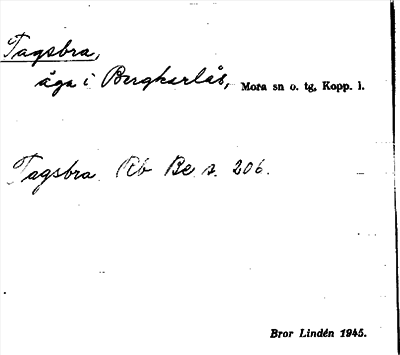 Tagsbra,
äga i Bergkarlås, Mora sn o. tg, Kopp. l.
Tagsbra Rb Be s. 206.
Bror Lindén 1945.